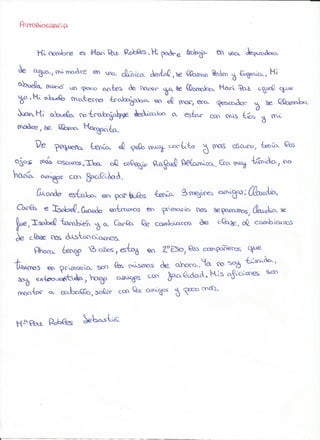 AUTOBIOGRAFÍA
Mi nombre es Mari Paz Robles. Mi padre trabaja en una depuradora
de agua, mi madre en una clínica dental, se llaman Pedro y Eugenia. Mi
abuela murió un poco antes de nacer yo, se llamaba Mari Paz igual que
yo. Mi abuelo materno trabajaba en el mar, era pescador y se llamaba
Juan. Mi abuela no trabajaba se dedicaba a estar con mis tíos y mi
madre, se llama Margarita.
De pequeña tenía el pelo muy cortito y mas oscuro, tenía los
ojos más oscuros. Iba al colegio Rafael Altamira. Era muy tímida, no
hacía amigos con facilidad.
Cuando estaba en parvulitos tenía 3 mejores amigas: Claudia,
Carla e Isabel. Cuando entramos en primaria nos separamos, Claudia se
fue, Isabel también y a Carla la cambiaron de clase, al cambiarnos
de clase nos distanciamos.
Ahora tengo 13 años, estoy en 2º ESO, los compañeros que
tuvimos en primaria son los mismos de ahora. Ya no soy tímida,
soy extrovertida, hago amigos con facilidad. Mis aficiones son
montar a caballo, salir con los amigos y poco más.
Mª Paz Robles Sebastiá